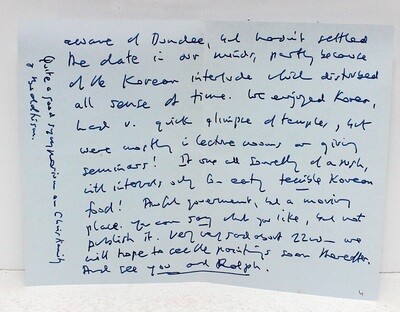 aware of Dundee, but hadn't settled
the date in our minds, partly because
of the Korean interlude which disturbed
all sense of time. We enjoyed Korea,
had v. quick glimpse of temples, but
were mostly in lecture rooms or giving
seminars! It was all something of a rush,
with intervals only for eating terrible Korean
food! Awful government, but a moving
place. You can say what you like, but not
publish it. Very very sad about 22nd – we
will hope to see the paintings soon thereafter.
And see you and Ralph.
4
Quite a good symposium on Christianity
& Buddhism.